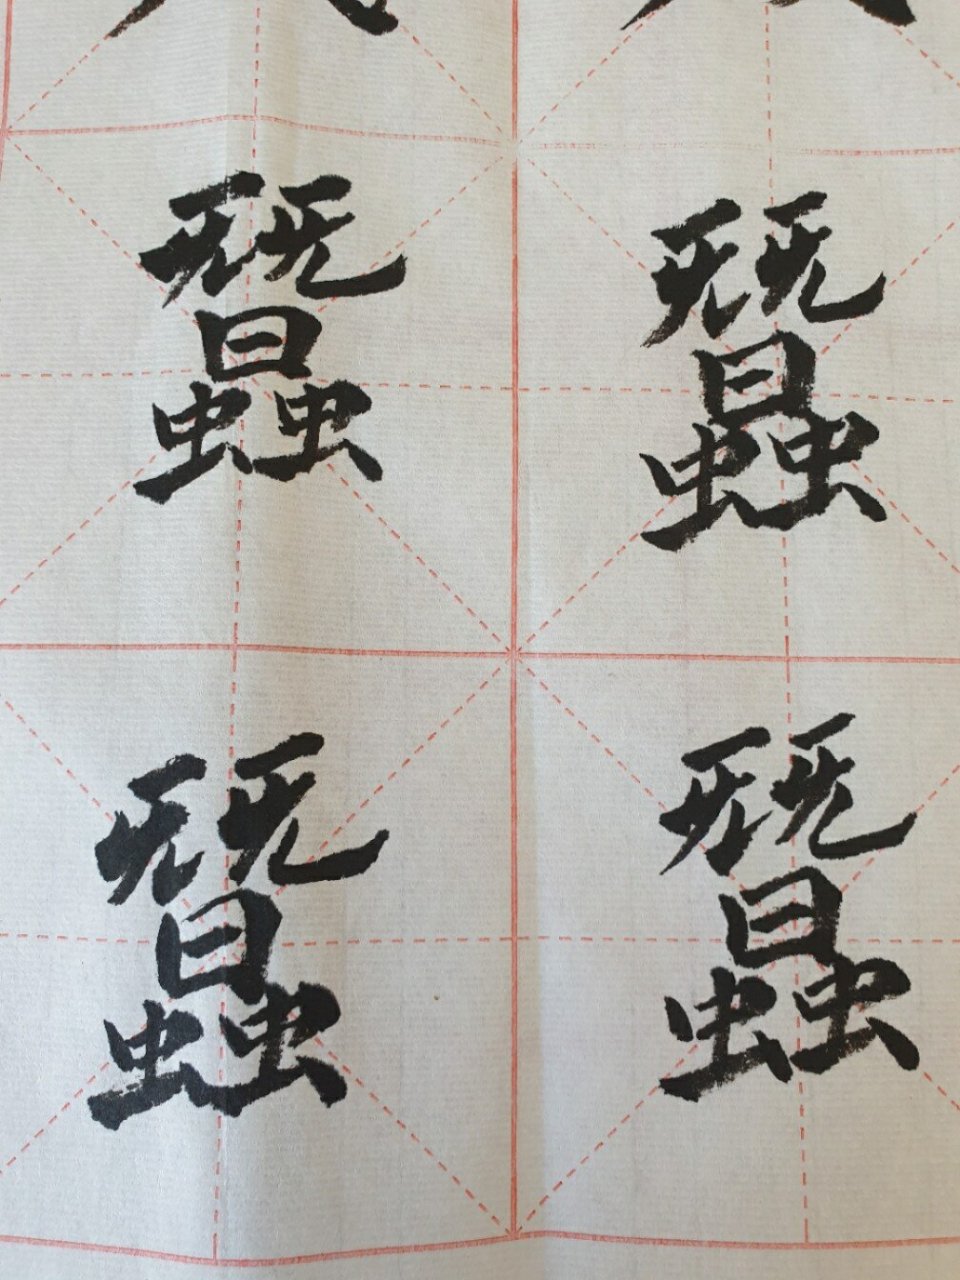 蠶 蠶
蠶 蠶